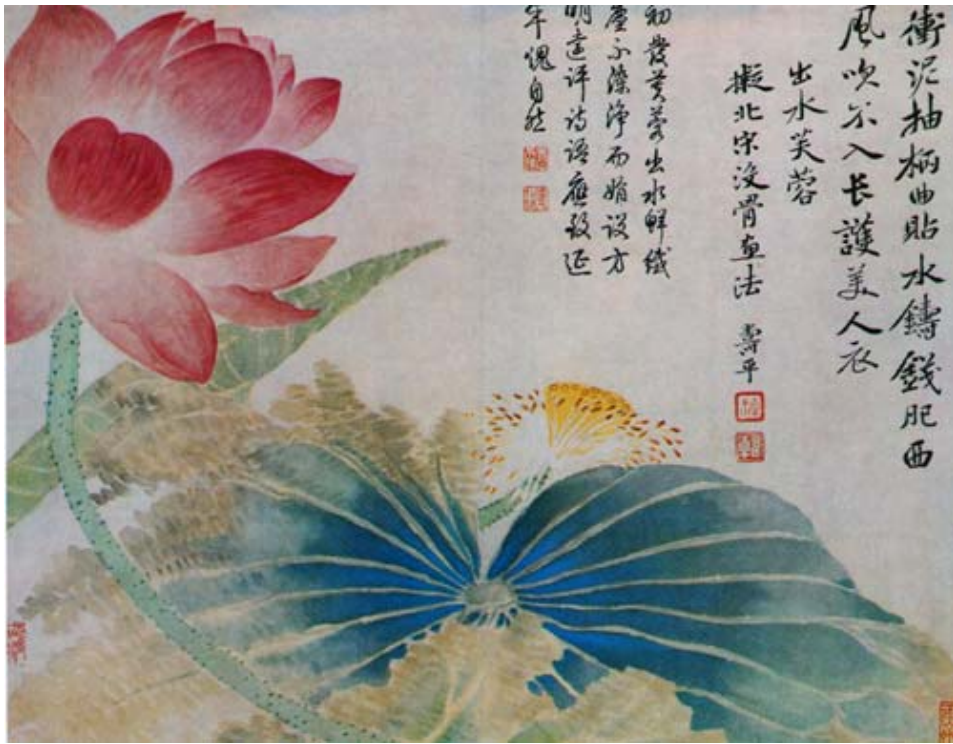 衝泥抽柄曲貼水鑄錢肥西
風吹不入长護美人衣
出水芙蓉
擬北宋没骨画法 壽平
初發芙蓉出水鮮纖
塵不染淨而娟設方
明遠评詩語應致延
年愧自然